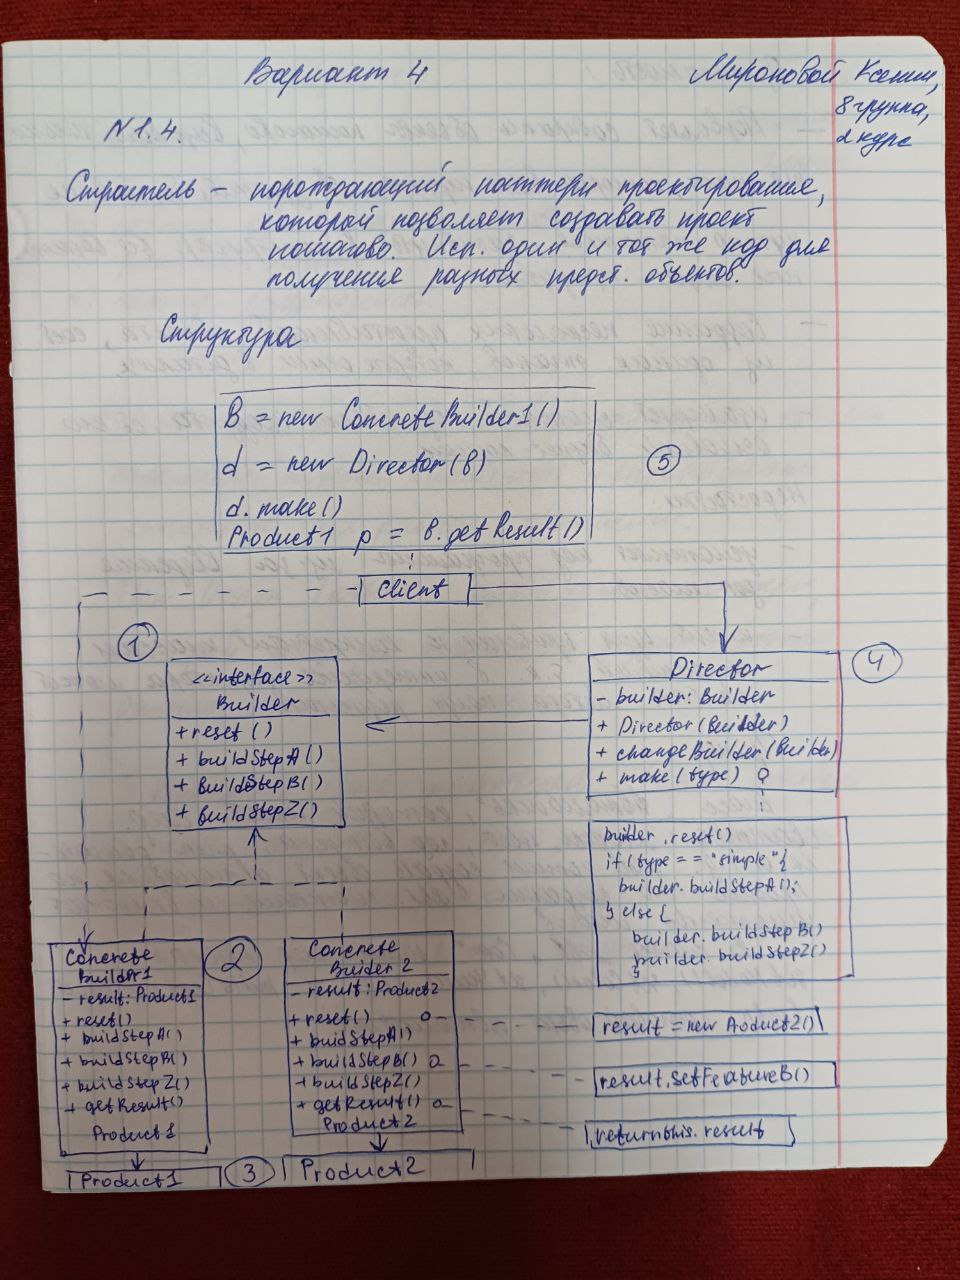 Вариант 4
Мироновой Ксении,
8 группа,
2 курс
N1.4.
Строитель – порождающий паттерн проектирования,
который позволяет создавать проект
пошагово. Исп. один и тот же код для
получения разных предст. объектов.
Структура
B = new ConcreteBuilder1()
d = new Director(B)
d.make()
Product1 p = B.getResult()
5
Client
1
<<interface>>
Builder
+ reset()
+ buildStepA()
+ BuildStepB()
+ BuildStepZ()
Director
- builder: Builder
+ Director(Builder)
+ changeBuilder(Builder)
+ make(type)
4
builder.reset()
if (type == "simple"{
builder.buildStepA();
} else {
builder.buildStepB()
builder.buildStepZ()
}
Concrete
Builder1
- result: Product1
+ reset()
+ buildStepA()
+ buildStepB()
+ buildStepZ()
+ getResult()
Product1
2
Concrete
Buider 2
- result: Product2
+ reset()
+ buidStepA()
+ buildStepB()
+ buildStepZ()
+ getResult()
Product2
result = new Product2()
result.setFeatureB()
return this.result
Product1
3
Product2